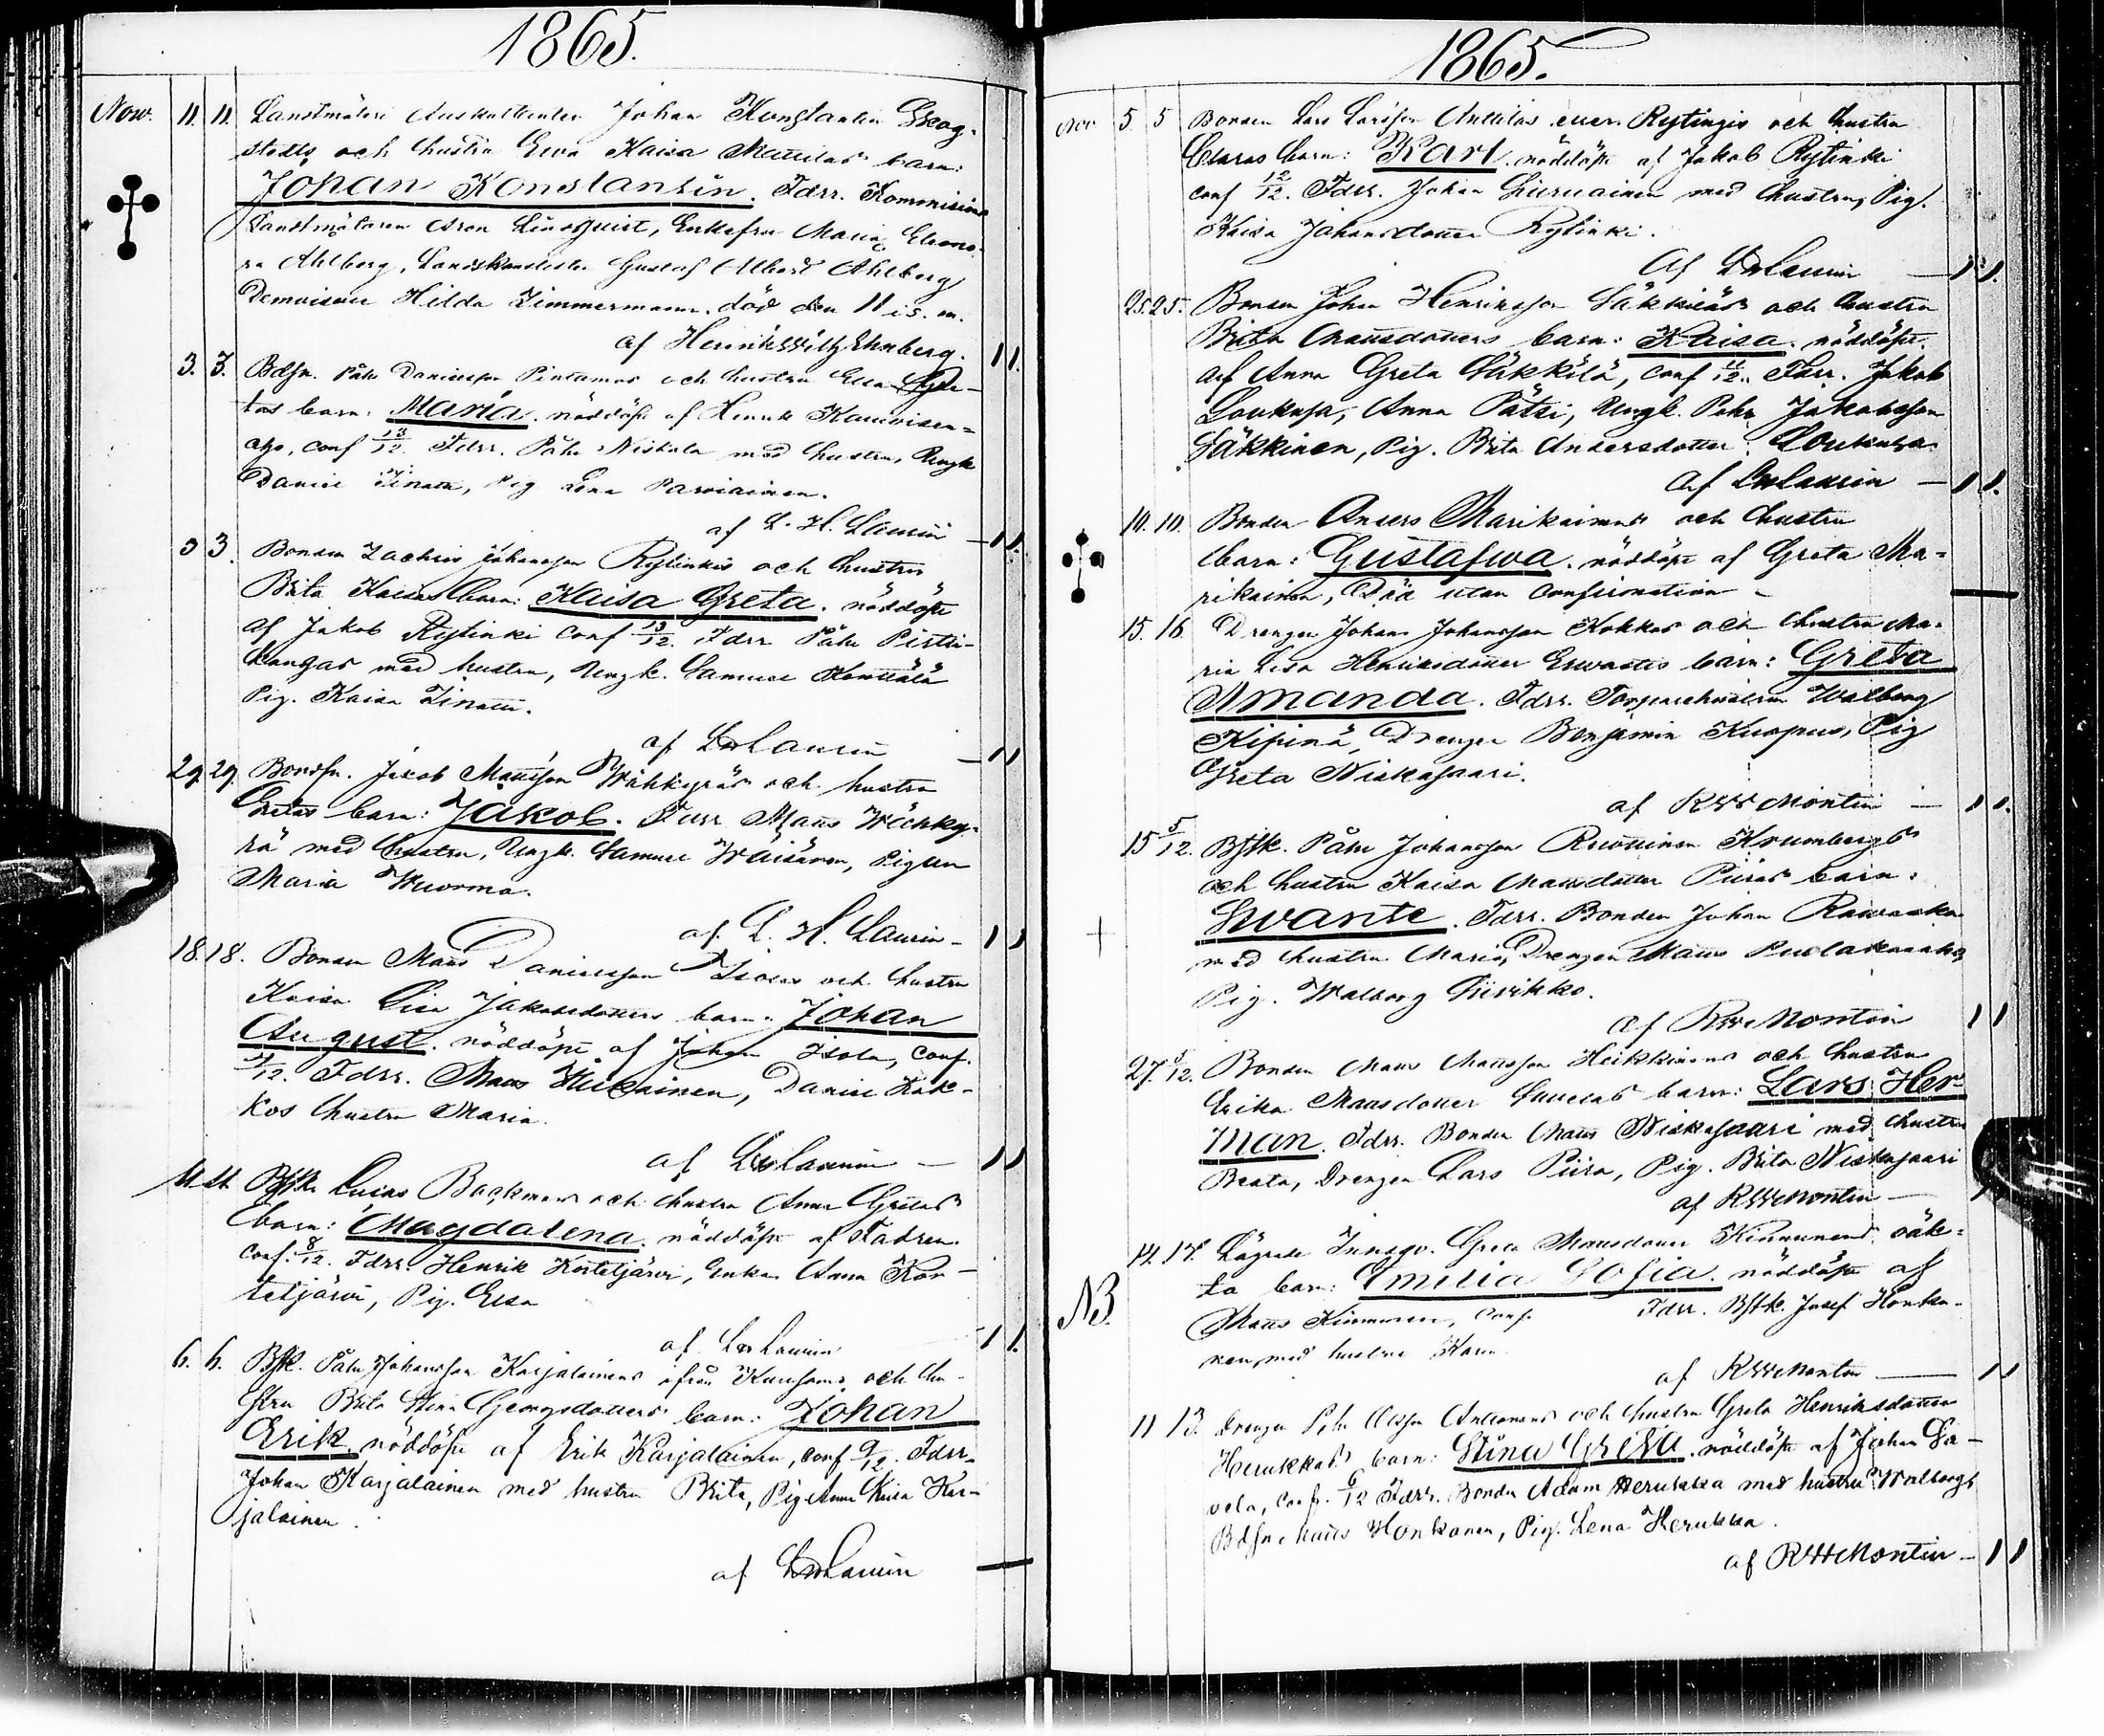 1865.
Nov. 11. 11. Landtmäteri Auskultanten Johan Konstantin Skog-
stedts och hustru Ewa Kaisa barn:
Johan Konstantin. Fdrr. Kommissions
Landtmätaren Aron Lindquist, Enkefru Maria Eleono-
ra Ahlberg, Landskanslisten Gustaf Albert Ahlberg
Demoiselle Hilda Zimmermann. död den 11 i s. m.
af Henrik Ehnberg. 1 1.
3. 3. Bdsn. Påhr Danielsson Pintamos och hustru Elsa
barn: Maria. nöddöpt af Henrik
aho, conf 13/12. Fdrr. Påhr Niskala med hustru, Ungk
Daniel, Pig Lena Parviainen.
af L. H. Laurin 1 1.
3 3. Bonden Zachris Johansson Rytinkis och hustru
Brita Kaisas barn: Kaisa Greta. nöddöpt
af Jakob Rytinki conf 13/12. Fdrr Påhr
kangas med hustru, Ungk. Samuel
Pig. Kaisa
af LHLaurin 1 1
29 29. Bondsn. Jakob Mattsson och hustru
Gretas barn: Jakob. Fdrr Matts Wähky-
rä med hustru, Ungk. Samuel Wäisänen, Pigan
Maria Wuorma.
af L. H. Laurin 1 1
18. 18. Bonden Matts Danielsson och hustru
Kaisa Lisa Jakobsdotters barn: Johan
August. nöddöpt af Johan Isola, conf.
/12. Fdrr. Matts, Daniel Kok-
kos hustru Maria.
af LHLaurin 1 1
Bstk. Lucas Backmans och hustru Anna Gretas
barn: Magdalena. nöddöpt af Fadren.
conf. 8/12. Fdrr. Henrik Kostetjärvi, Enkan Anna Kos-
tetjärvi, Pig. Elsa
af LHLaurin 1 1.
6. 6. Bstk. Påhr Johansson Karjalainens ifrån Kuusamo och hu-
stru Brita Stina Georgsdotters barn: Johan
Erik nöddöpt af Erik Karjalainen, conf 9/12. Fdrr.
Johan Karjalainen med hustru Brita, Pig Anna Kaisa Kar-
jalainen.
af LHLaurin
1865.
Nov 5 5 Bonden Lars Larsson Anttilas eller Rytingis och hustru
Claras barn: Karl. nöddöpt af Jakob Rytinki
conf 12/12. Fdrr. Johan med hustru, Pig.
Kaisa Johansdotter Rytinki.
Af LHLaurin 1 1.
25. 25. Bonden Johan Henriksson Säkkiläs och hustru
Brita Mattsdotters barn: Kaisa nöddöpt
af Anna Greta Säkkilä, conf 11/12. Fdrr. Jakob
Loukusa, Anna Pätsi, Ungk. Påhr Jakobsson
Säkkinen, Pig. Brita Andersdotter Loukusa.
af LHLaurin 1 1.
10. 10. Bonden Anders Marikainens och hustru
barn: Gustafwa. nöddöpt af Greta Ma-
rikainen, Död utan confirmation
15. 16 Drengen Johan Johansson Kokkos och hustru Ma-
ria Lisa Henriksdotter Erwastis barn: Greta
Amanda. Fdrr. Torparehustrun Walborg
Kipinä, Drengen Benjamin, Pig
Greta Niskasaari.
af RWMontin 1 1.
15 5/12. Bstk. Påhr Johansson Ruottinen Krumbergs
och hustru Kaisa Mattsdotter Piiras barn:
Swante. Fdrr. Bonden Johan
med hustru Maria, Drengen Matts Puolakanaho,
Pig. Walborg
af RWMontin 1 1
27. 5/12. Bonden Matts Mattsson Heikkinens och hustru
Erika Mattsdotter barn: Lars Her-
man. Fdrr. Bonden Matts Niskasaari med hustru
Beata, Drengen Lars Piira, Pig. Brita Niskasaari
af RWMontin
14. 17. Lägrade Greta Mattsdotter Kinnunens oäk-
ta barn: Emilia Sofia. nöddöpt af
NB. Matts Kinnunen, conf. Fdrr. Bstk. Josef Honka-
nen med hustru
af RWMontin 1 1
11 13. Drengen Påhr Olsson Anttonens och hustru Greta Henriksdotter
Herukkas barn: Stina Greta. nöddöpt af Johan Sa-
vela, conf. 6/12 Fdrr. Bonden Adam Herukka med hustru Walborg,
Bdsn Matts Honkanen, Pig. Lena Herukka.
af RWMontin 1 1